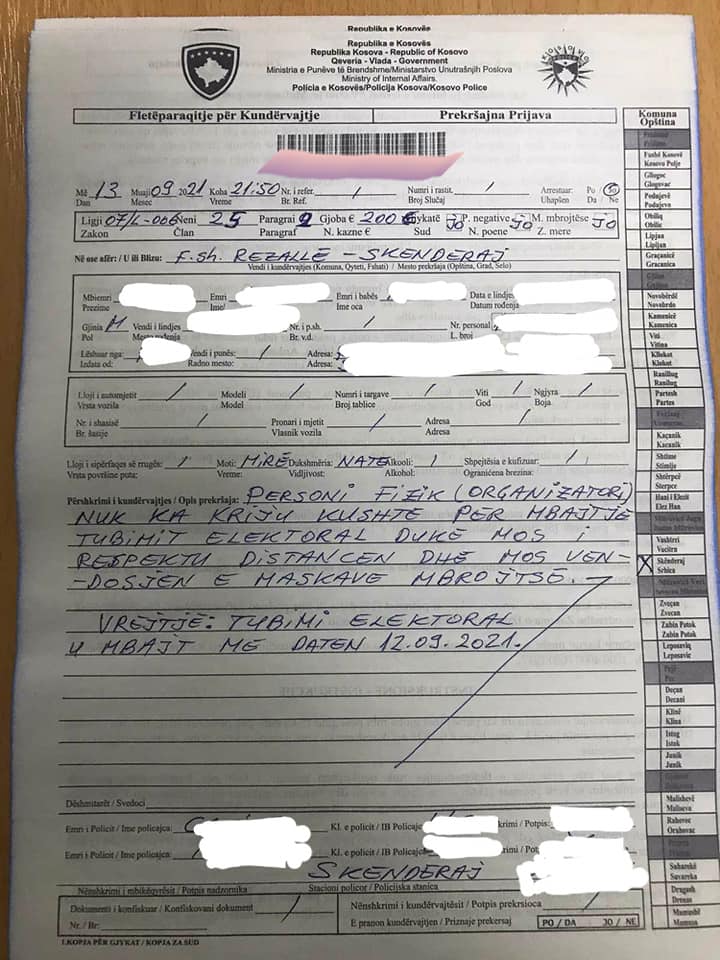 Republika e Kosovës
Republika e Kosovës
Republika Kosova - Republic of Kosovo
Qeveria - Vlada - Government
Ministria e Punëve të Brendshme/Ministarstvo Unutrašnjih Poslova
Ministry of Internal Affairs.
Policia e Kosovës/Policija Kosova/Kosovo Police
Fletëparaqitje për Kundërvajtje Prekršajna Prijava
Më 13 Muaji 09 2021 Koha 21:50 Nr. i refer. / Numri i rastit. / Arrestuar: Po Jo
Dan Mesec Vreme Br. Ref. Broj Slučaj Uhapšen Da / Ne
Ligji 07/L-006 Neni 25 Paragrai 2 Gjoba € 200 € Gjykatë Jo P. negative Jo M. mbrojtëse Jo
Zakon Član Paragraf N. kazne € Sud N. poene Z. mere
Në ose afër: / U ili Blizu: F.SH. REZALLË - SKENDERAJ
Vendi i kundërvajtjes (Komuna, Qyteti, Fshati) / Mesto prekršaja (Opština, Grad, Selo)
Mbiemri Emri Emri i babës Data e lindjes
Prezime Ime Ime oca Datum rođenja
Gjinia M Vendi i lindjes Nr. i p.sh. / Nr. personal
Pol Mesto rođenja Br. v.d. L. broj
Lëshuar nga: Vendi i punës: / Adresa:
Izdata od: Radno mesto: Adresa:
Lloji i automjetit / Modeli / Numri i targave / Viti / Ngjyra /
Vrsta vozila Model Broj tablice God Boja
Nr. i shasisë / Pronari i mjetit / Adresa /
Br. šasije Vlasnik vozila Adresa
Lloji i sipërfaqes së rrugës: / Moti: MIRË Dukshmëria: NATË Alkooli: / Shpejtësia e kufizuar: /
Vrsta površine puta: Vreme: Vidljivost: Alkohol: Ograničena brzina:
Përshkrimi i kundërvajtjes / Opis prekršaja: PERSONI FIZIK (ORGANIZATORI)
NUK KA KRIJU KUSHTE PËR MBAJTJE
TUBIMIT ELEKTORAL DUKE MOS I
RESPEKTU DISTANCEN DHE MOS VEN-
-DOSJEN E MASKAVE MBROJTSË.
VREJTJE: TUBIMI ELEKTORAL
U MBAJT ME DATEN 12.09.2021.
Dëshmitarët / Svedoci
Emri i Policit / Ime policajca: Kl. e policit / IB Policajca krimi / Potpis:
Emri i Policit / Ime policajca: Kl. e policit / IB Policajca rimi / Potpis:
SKENDERAJ
Nënshkrimi i mbikëqyrësit / Potpis nadzornika Stacioni policor / Policijska stanica
Dokumenti i konfiskuar / Konfiskovani dokument / Nënshkrimi i kundërvajtësit / Potpis prekrsioca /
Nr. / Br: E pranon kundërvajtjen / Priznaje prekersaj PO / DA JO / NE
1.KOPJA PËR GJYKAT / KOPJA ZA SUD
Komuna
Opština
Fushë Kosovë
Kosovo Polje
Gllogoc
Glogovac
Podujevë
Podujevo
Obiliq
Obilic
Lipjan
Lipljan
Graçanicë
Gracanica
Novobërdë
Novobrdo
Kamenicë
Kamenica
Viti
Vitina
Kllokot
Klokot
Ranillug
Ranilug
Partesh
Partes
Kaçanik
Kacanik
Shtime
Stimlje
Shtërpcë
Sterpce
Hani i Elezit
Elez Han
Vushtrri
Vucitrn
X Skënderaj
Srbica
Zveçan
Zvecan
Zubin Potok
Zubin Potok
Leposaviq
Leposavic
Deçan
Decani
Klinë
Klina
Istog
Istok
Junik
Junik
Malishevë
Malisevo
Rahovec
Orahovac
Suharekë
Suvareka
Dragash
Mamushë
Mamusa